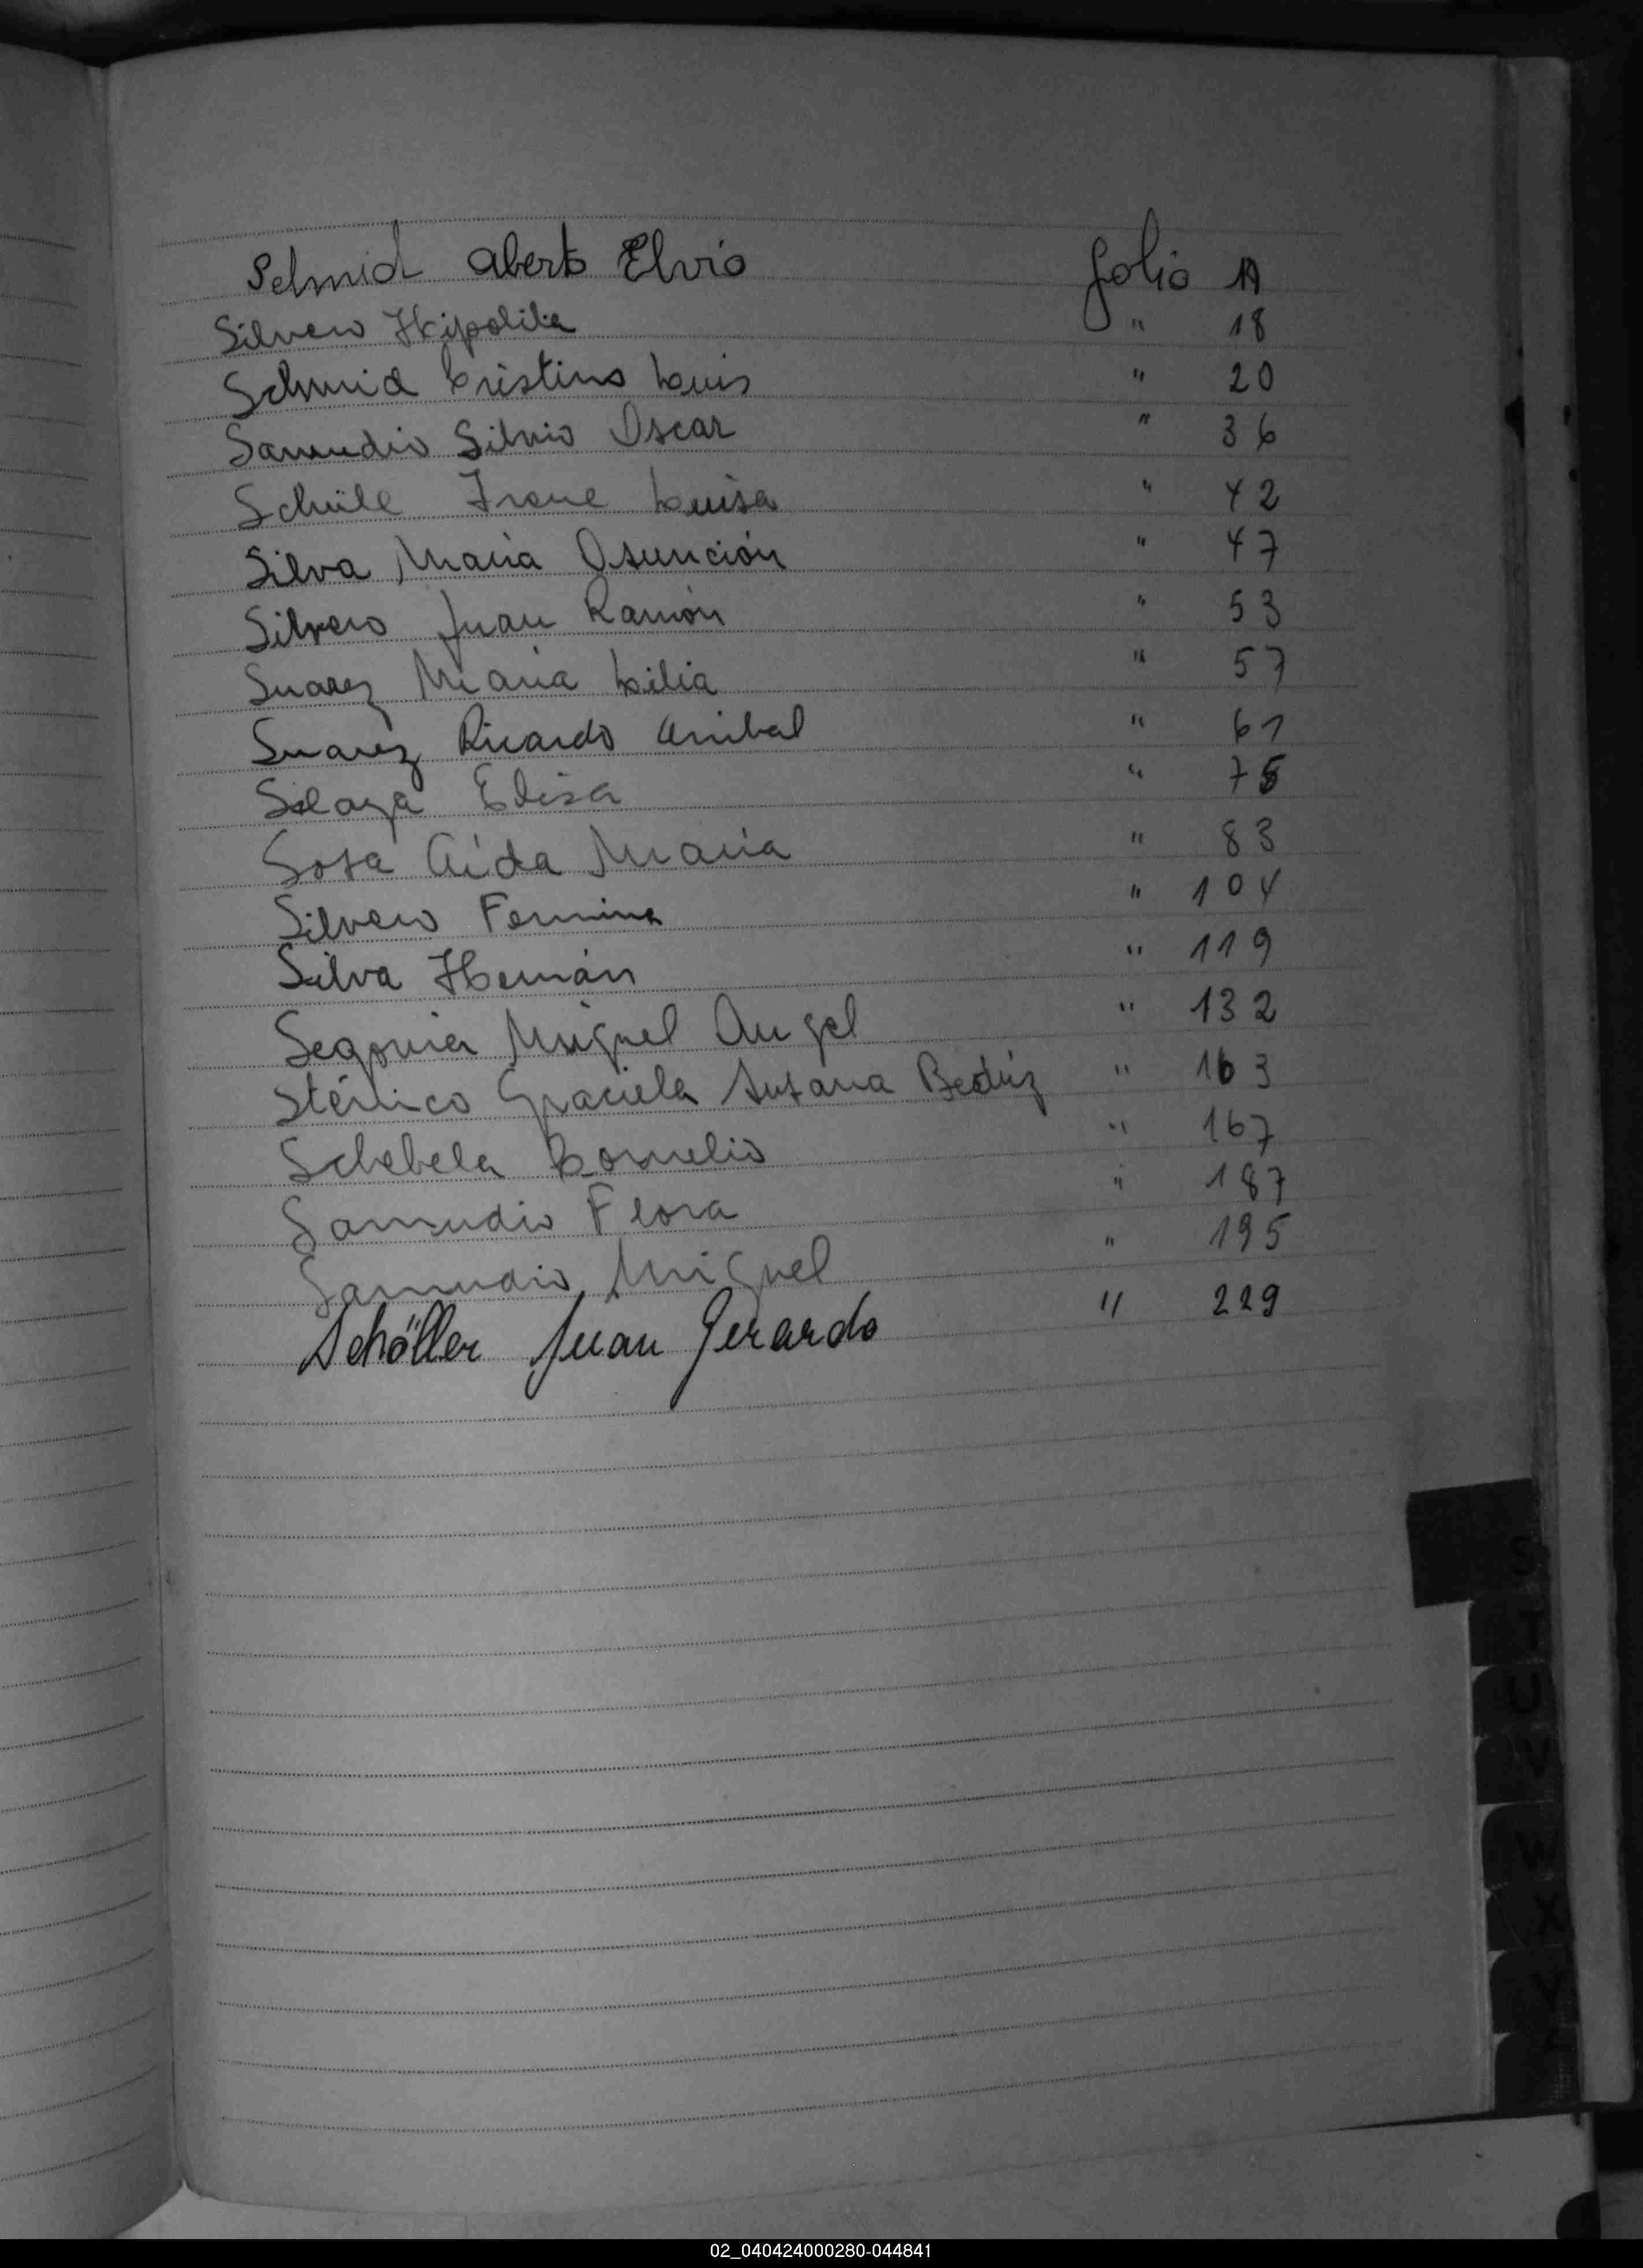 Schmid Aberto Elvio folio 11
Silvero Hipolita " 18
Schmid Cristino Luis " 20
Samudio Silvio Oscar " 36
Schüle Irene Luisa " 42
Silva María Asunción " 47
Silvero Juan Ramón " 53
Suarez Maria Lilia " 57
Suarez Ricardo Anibal " 61
Silaga Elisa " 75
Sosa Aída Maria " 83
Silvero Fermina " 104
Silva Hernán " 119
Segovia Miguel Angel " 132
Graciela Susana Beatriz " 163
Schebela Cornelio " 167
Samudio Flora " 187
Samudio Miguel " 195
Schöller Juan Gerardo " 229
S
T
U
V
W
X
Y
02_040424000280-044841